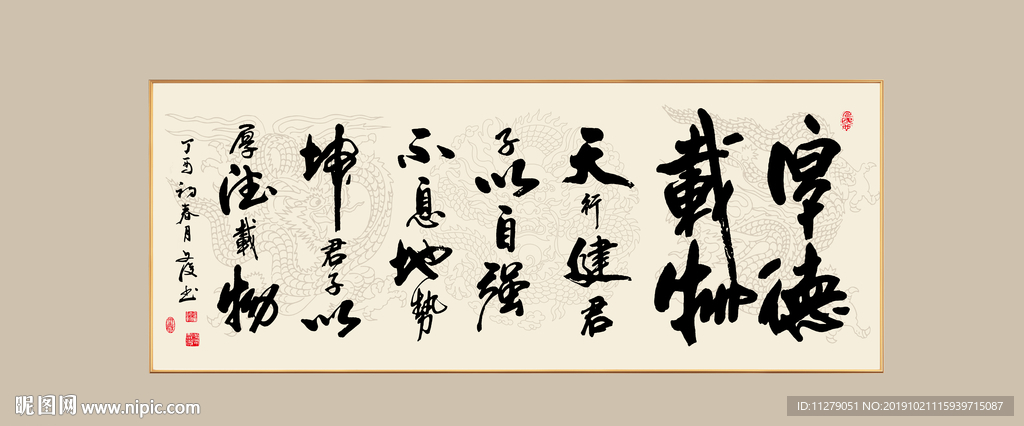 厚德
載物
天行健君
子以自强
不息地势
坤君子以
厚德載物
丁酉初春月
书
昵图网 www.nipic.com
ID:11279051 NO:20191021115939715087